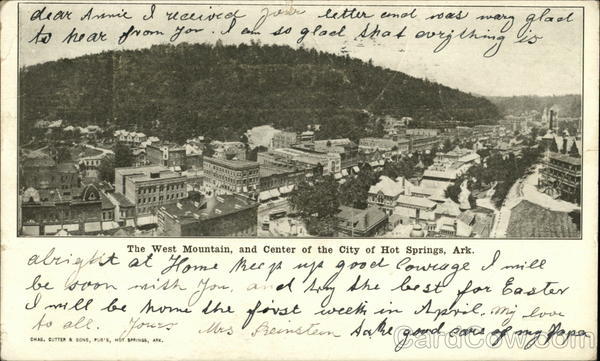 dear Annie I received your letter and was vary glad
to hear from You. I am so glad that evrything is
The West Mountain, and Center of the City of Hot Springs, Ark.
alright at Home keep up good Courage I will
be soon with You. and try the best for Easter
I will be home the first week in April. my love
to all. Yours Mrs Beinstein take good care of my Papa
CHAS. CUTTER & SONS, PUB'S, HOT SPRINGS, ARK.
CardCow.com